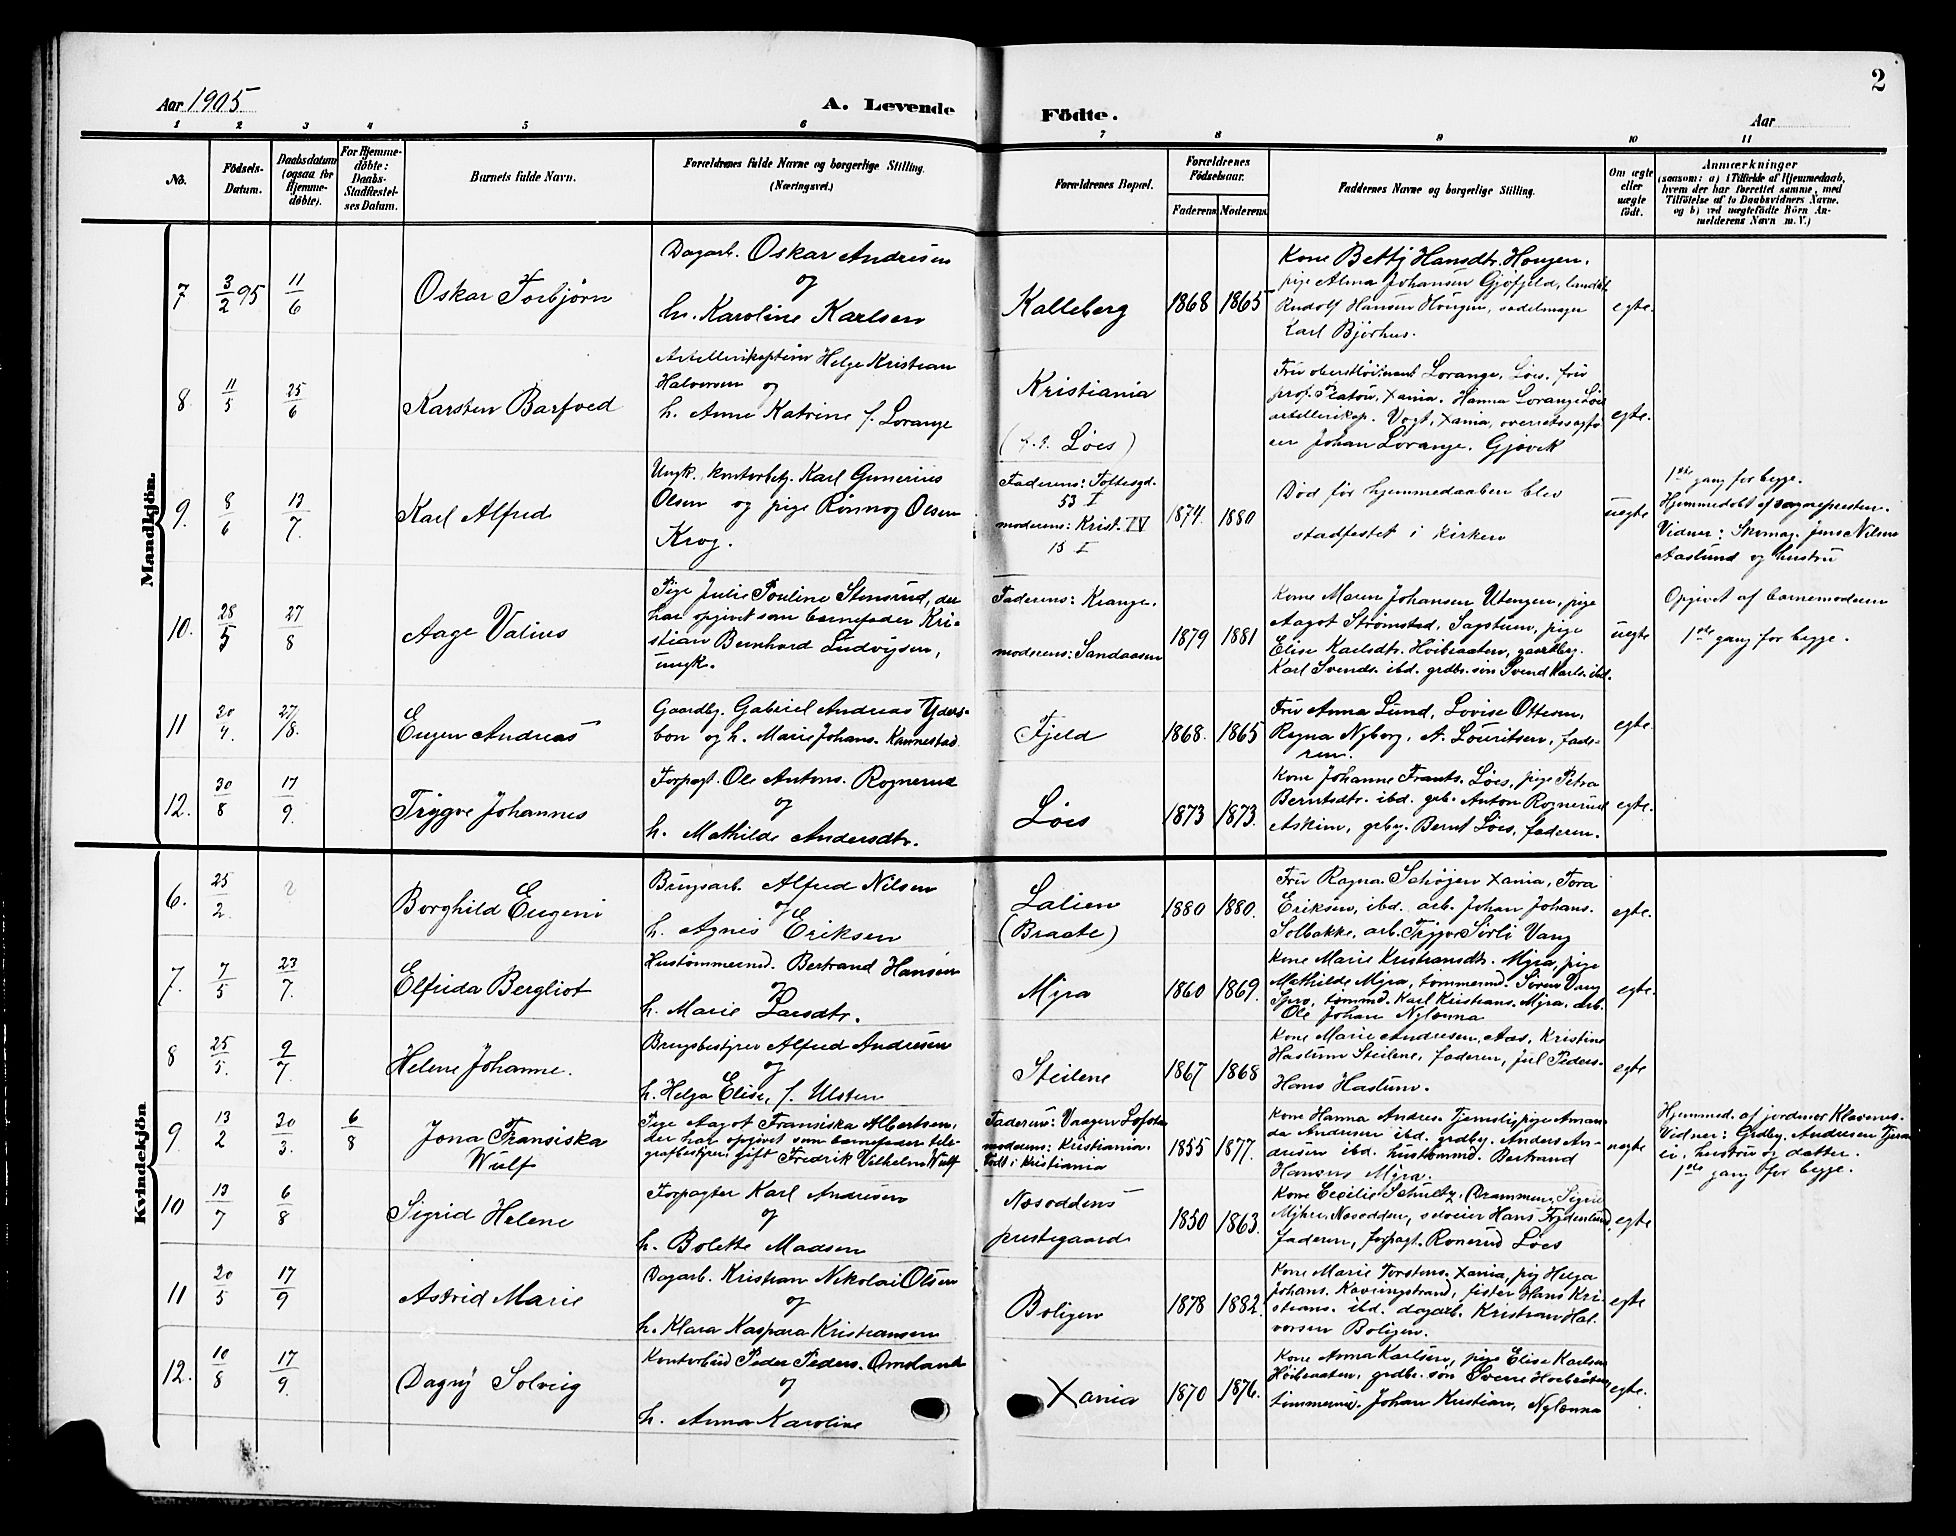 2
Aar 1905
A. Levende
Födte.
Aar
1 2 3 4 5 6 7 8 9 10 11
No.
Födsels-
Datum.
Daabsdatum
(ogsaa for
Hjemme-
döbte).
For Hjemme-
döbte:
Daabs-
Stadfæstel-
ses Datum.
Barnets fulde Navn.
Forældrenes fulde Navne og borgerlige Stilling.
(Næringsvei.)
Forældrenes Bopæl.
Forældrenes
Födselsaar.
Faderens Moderens
Faddernes Navne og borgerlige Stilling.
Om ægte
eller
uægte
født.
Anmærkninger
(saasom: a) i Tilfælde af Hjemmedaab,
hvem der har forrettet samme, med
Tilföielse af to Daabsvidners Navne,
og b) ved uægtefödte Börn An-
melderens Navn m. V.)
Mandkjön.
7
3/2 95
11/6
Oskar Torbjørn
Dagarb. Oskar Andresen
og
h. Karoline Karlsen
Kalleberg
1868 1865
Kone Betty Hansdtr. Hougen,
pige Alma Johansen Gjøfjeld, landh.
Rudolf Hansen Hougen, sadelmager
Karl Bjørhus.
egte.
8.
11/5
25/6
Karsten Barfoed
Artillerikaptein Helge Kristian
Halvorsen og
h. Anne Katrine f. Lorange
Kristiania
Løes)
Fru oberstløitnant Lorange, Løes, fru
prof. Platou, Xania. Hanna Lorange Løes
artellerikap. Vogt, Xania, overretssagfø-
rer Johan Lorange, Gjøvik
egte.
9.
8/6
13/7.
Karl Alfred
Ungk. kontorbetj. Karl Gunerius
Olsen og pige Rønnog Olsen
Krog.
Faderens: Toftesgd.
53 I
moderens: Krist. IV
15 I
1874. 1880
Død før hjemmedaaben blev
stadfestet i kirken
uegte
1ste gang for begge.
Hjemmedøbt af sognepresten.
Vidner: Skomag. Jens Nilsen
Aaslund og hustru
10.
28/5
27/8
Aage Valius
Pige Julie Pouline Stensrud, der
har opgivet som barnefader Kri-
stian Bernhard Ludvigsen,
ungk.
Faderens: Krange.
moderens: Sandaasen
1879 1881
Kone Maren Johansen Utengen, pige
Aagot Strømstad, Sagstuen, pige
Elise Karlsdtr. Høibraaten, gaardbg.
Karl Svends. ibd. grdbr. søn Svend Karls. ibd.
uegte
Opgivet af barnemoderen
1ste gang for begge.
11
20/4.
27/8.
Eugen Andreas
Gaardbg. Gabriel Andreas
bon og h. Marie Johans. Kannestad
Fjeld
1868. 1865
Fru Anna Lund, Lovise Ottesen,
Ragna Nyborg, A. Louritsen, fade-
ren.
egte.
12.
30/8
17/9.
Trygve Johannes
Forpagt. Ole Antons. Rognerud
og
h. Mathilde Andersdtr.
Løes
1873 1873.
Kone Johanne Frants. Løes, pige Petra
Berntsdtr. ibd. grb. Anton Rognerud
Askim, grbg. Bernt Løes, faderen.
egte.
Kvindekjön
6.
25/2.
2
Borghild Eugeni
Brugsarb. Alfred Nilsen
og
h. Agnes Eriksen
Lalien
(Braate)
1880 1880.
Fru Ragna Schøyen Xania, Tora
Eriksen, ibd. arb. Johan Johans.
Solbakke, arb. Trygve Sørli Vang
egte.
7.
7/5
23/7.
Elfrida Bergliot
Hustømmermd. Bertrand Hansen
og
h. Marie Larsdtr.
Myra
1860 1869.
Kone Marie Kristiansdtr. Myra, pige
Mathilde Myra, tømmermd. Søren Vang
Spro, tømmd. Karl Kristians. Myra, arb.
Ole Johan Nylænna
egte.
8
25/5.
9/7.
Helene Johanne.
Brugsbestyrer Alfred Andresen
og
h. Helga Elise, f. Ulsten
Steilene
1867 1868
Kone Marie Andresen, Aas, Kristine
Haslum Steilene, faderen, Jul Peders.
Hans Haslum.
egte
9
13/2
20/3.
6/8
Jona Fransiska
Wulf
Pige Aagot Fransiska Albertsen,
der har opgivet som barnefader tele-
grafbestyrer gift Fredrik Vilhelm Wulf
Faderens: Vaagen Lofoten
moderens: Kristiania.
Født i Kristiania
1855 1877.
Kone Hanna Andres. Tjernsli, pige Aman-
da Andersen ibd. grdbg. Anders An-
dresen ibd. hustømmd. Bertrand
Hansens Myra.
uegte
Hjemmed. af jordmor Klavenes.
Vidner: Grdbg. Andresen Tjerns-
li, hustru og datter.
1ste gang for begge.
10
13/7
6/8
Sigrid Helene
Forpagter Karl Andresen
og
h. Bolette Madsen
Nesoddens
prestegaard
1850 1863.
Kone Cecilie Schultz, Drammen, Sigrid
Myhre, Nesodden, selveier Hans Fjelderlund,
faderen, forpagt. Ronerud Løes
egte
11
20/5
17/9
Astrid Marie
Dagarb. Kristian Nikolai Olsen
og
h. Klara Kaspara Kristiansen
Boligen
1878 1882.
Kone Marie Torstens. Xania, pig Helga
Johans. Kavringstrand, fisker Hans Kri-
stians. ibd. dagarb. Kristian Hal-
vorsen Boligen.
egte
12.
10/8
17/9.
Dagny Solveig
Kontorbud Peder Peders. Omsland
og
h. Anna Karoline
Xania
1870 1876.
Kone Anna Karlsen, pige Elise Karlsen
Høibraaten, grdbr. søn Sverre Høibraaten,
tømmermd. Johan Kristian, Nylænna
egte.